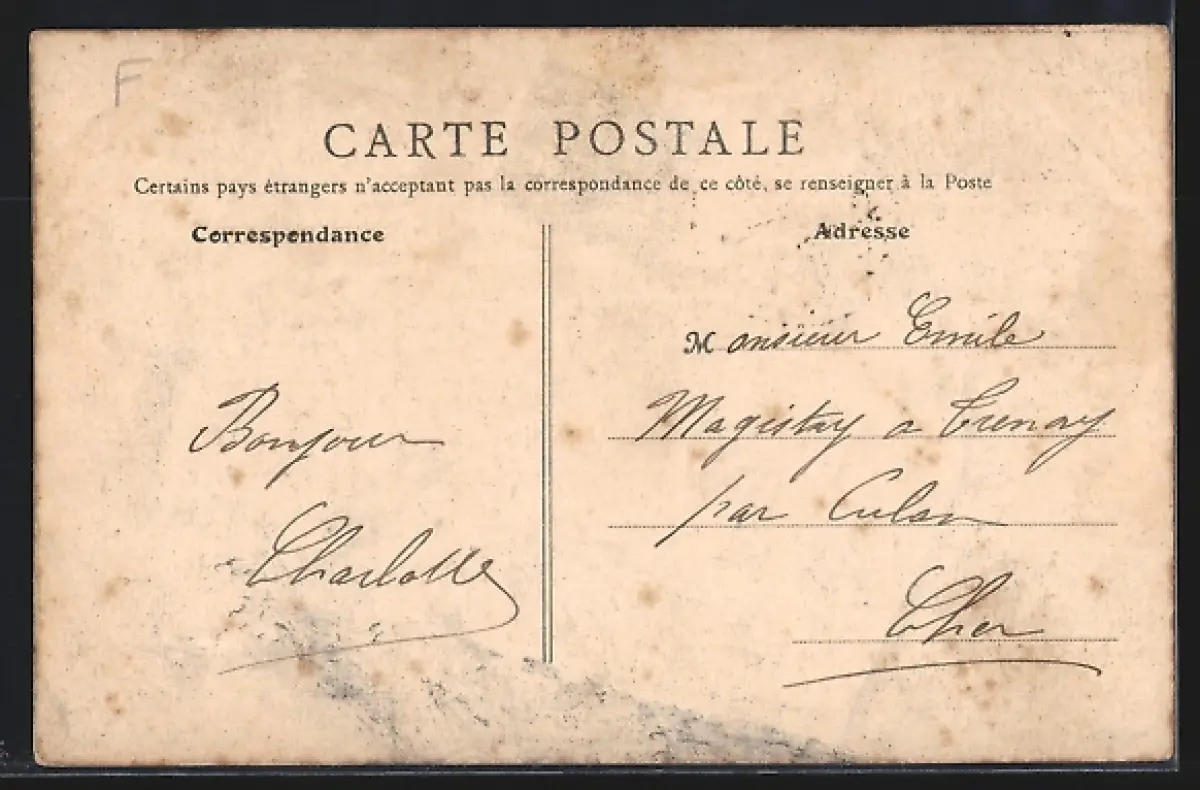 F
CARTE POSTALE
Certains pays étrangers n'acceptant pas la correspondance de ce côté, se renseigner à la Poste
Correspondance
Adresse
Bonjour
Charlotte
Monsieur Emile
Magistry a
par Culan
Cher